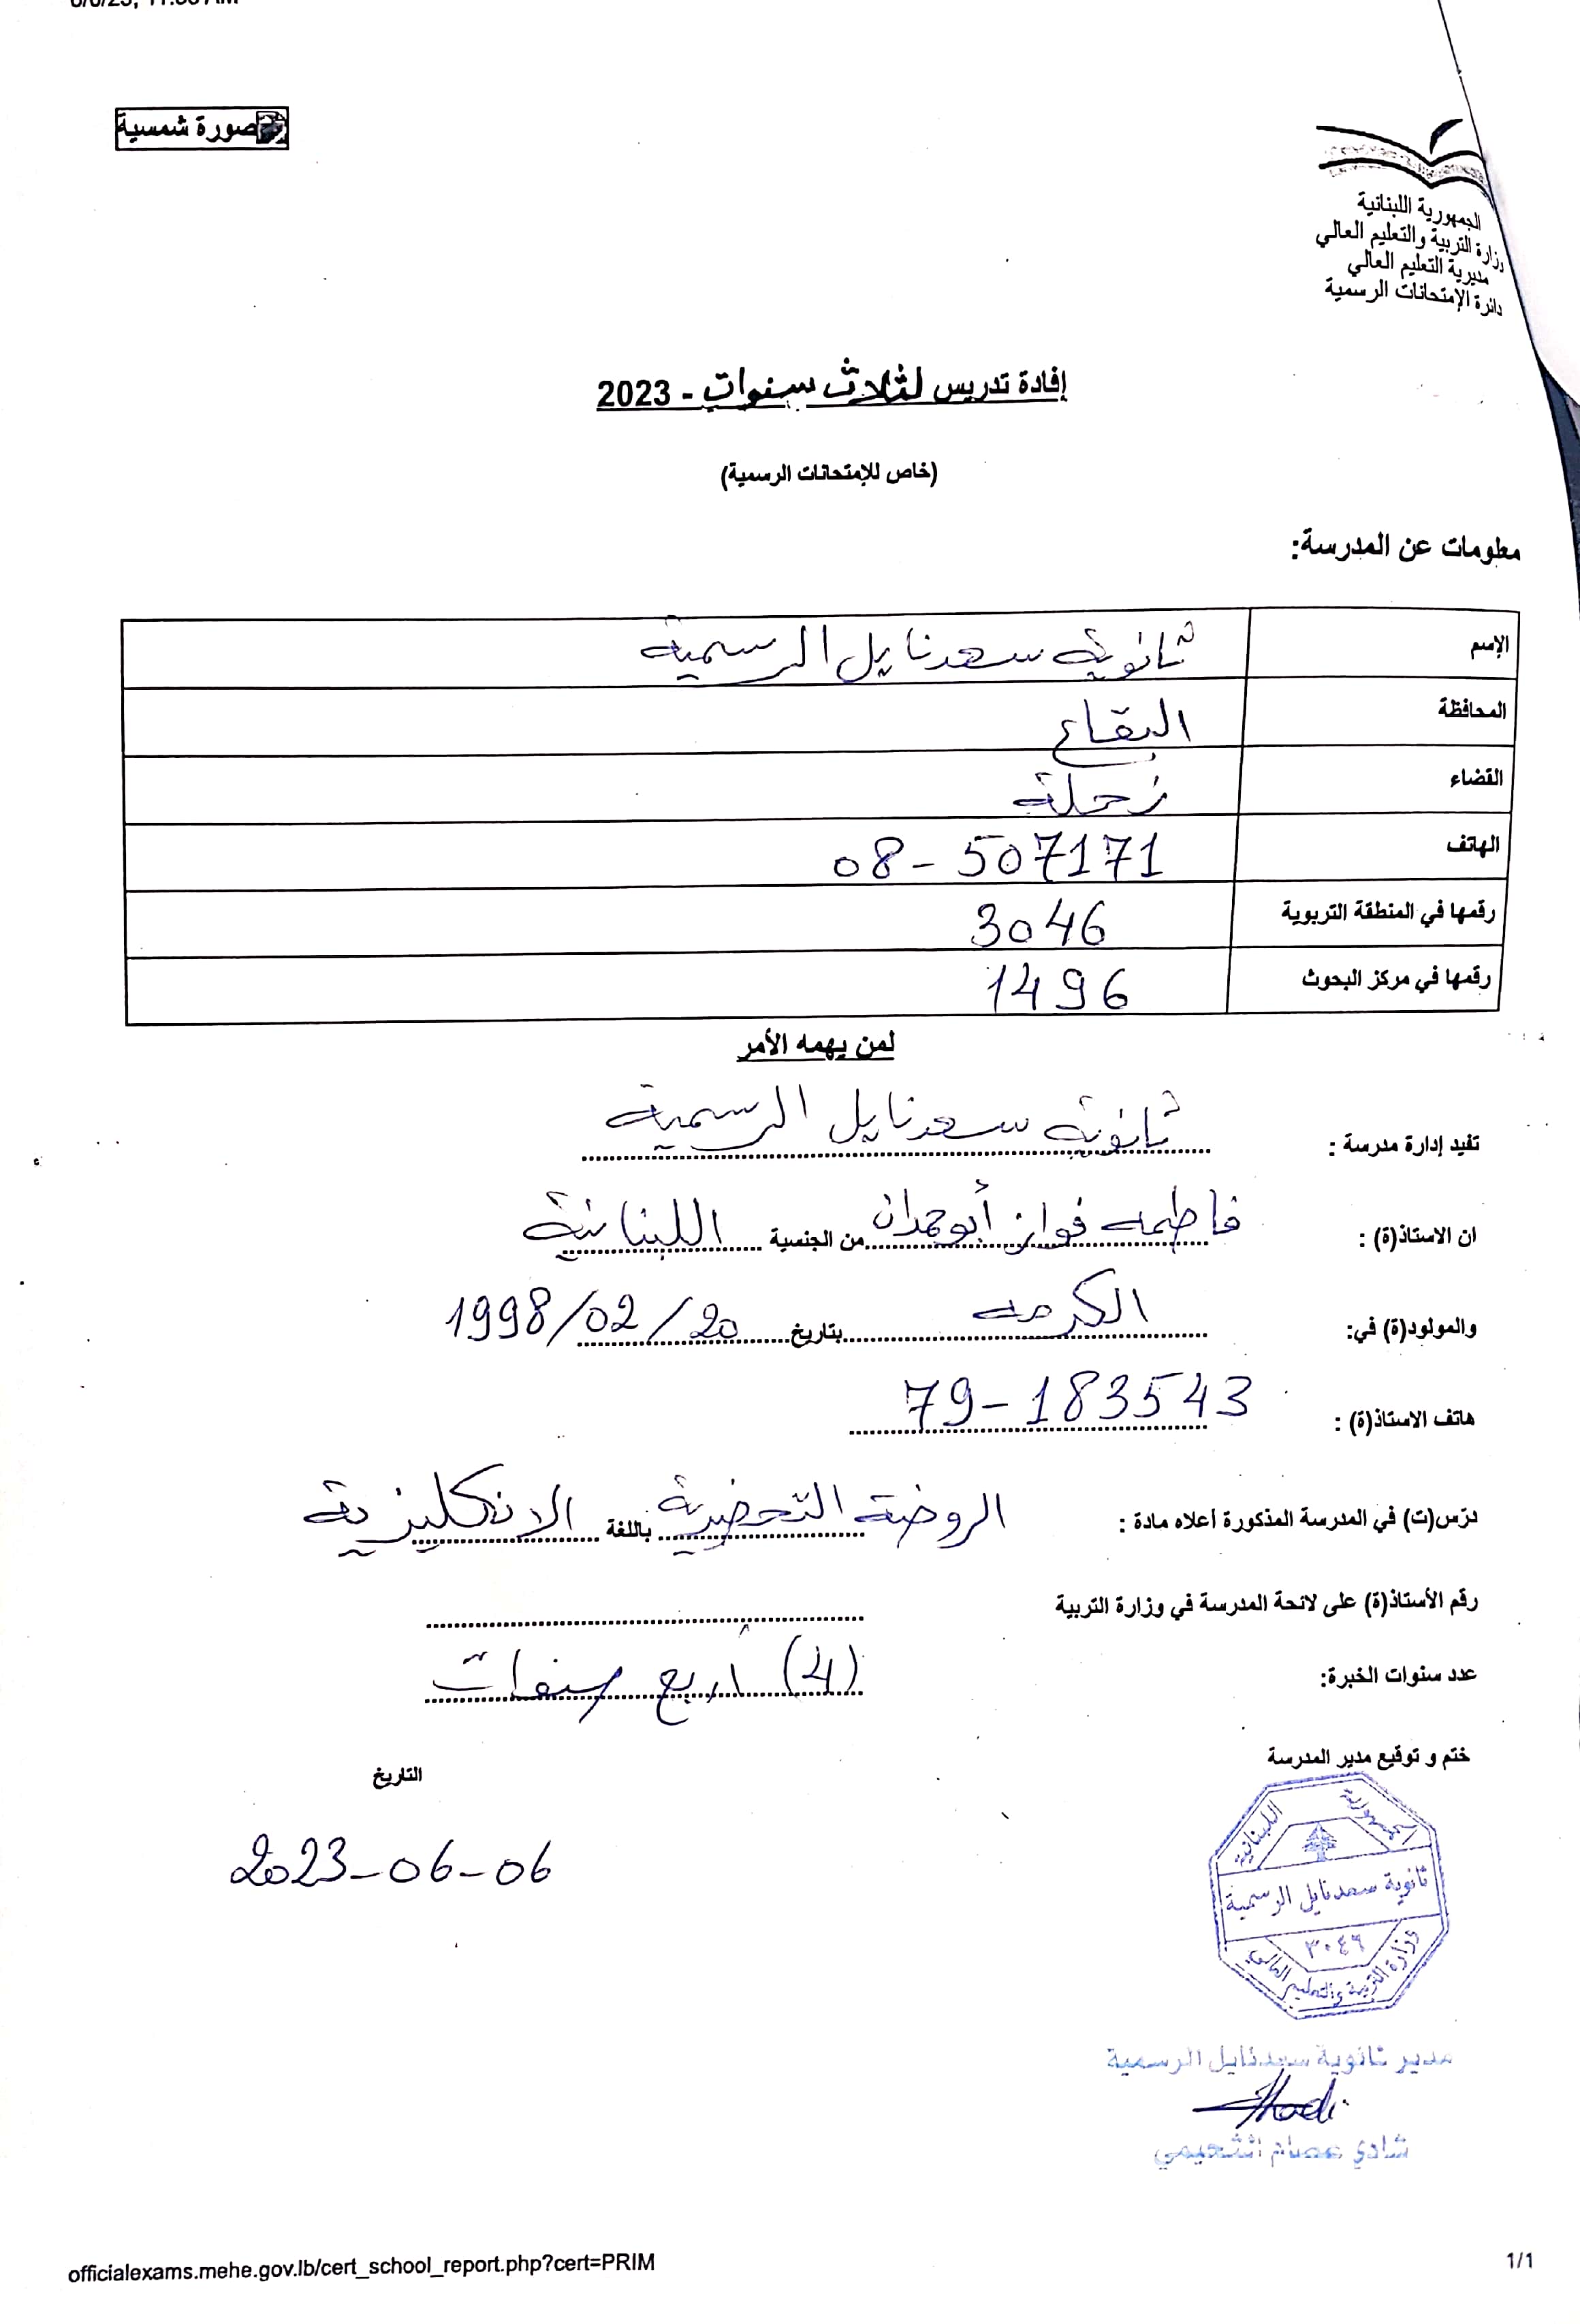 صورة شمسية
الجمهورية اللبنانية
وزارة التربية والتعليم العالي
مديرية التعليم العالي
دائرة الإمتحانات الرسمية
إفادة تدريس لثلاث سنوات - 2023
(خاص للإمتحانات الرسمية)
معلومات عن المدرسة:
الإسم ثانوية سعدنايل الرسمية
المحافظة البقاع
القضاء زحلة
الهاتف 08-507171
رقمها في المنطقة التربوية 3046
رقمها في مركز البحوث 1496
لمن يهمه الأمر
تفيد إدارة مدرسة : ثانوية سعدنايل الرسمية
ان الاستاذ(ة) : فاطمه فواز أبو حمدان من الجنسية اللبنانية
والمولود(ة) في: الكرمه بتاريخ 20/02/1998
هاتف الاستاذ(ة) : 79-183543
درّس(ت) في المدرسة المذكورة أعلاه مادة : الروضة التحضيرية باللغة الانكليزية
رقم الأستاذ(ة) على لائحة المدرسة في وزارة التربية
عدد سنوات الخبرة: (4) أربع سنوات
ختم و توقيع مدير المدرسة
التاريخ
2023-06-06
الجمهورية اللبنانية
ثانوية سعدنايل الرسمية
٣٠٤٦
وزارة التربية والتعليم العالي
مدير ثانوية سعدنايل الرسمية
Shadi
شادي عصام الشحيمي
officialexams.mehe.gov.lb/cert_school_report.php?cert=PRIM
1/1